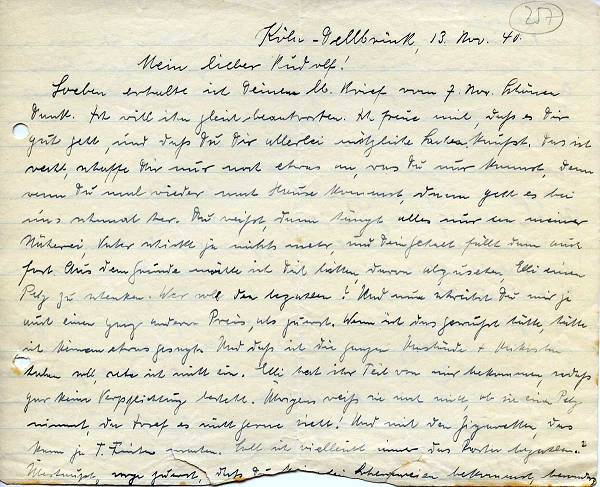 257
Köln-Dellbrück, 13. Nov. 40.
Mein lieber Rudolf!
Soeben erhalte ich Deinen lb. Brief vom 7. Nov. Schönen
Dank. Ich will ihn gleich beantworten. Ich freue mich, daß es Dir
gut geht, und daß Du Dir allerlei nützliche Sachen kaufst. Das ist
recht, schaffe Dir nur noch etwas an, was Du nur kannst, denn
wenn Du mal wieder nach Hause kommst, dann geht es bei
uns schmal her. Du weißt, dann hängt alles nur an meiner
Näherei. Vater schickt ja nichts mehr, und Dein Gehalt fällt dann auch
fort. Aus dem Grunde möchte ich Dich bitten, davon abzusehen, Elli einen
Pelz zu schenken. Wer soll den bezahlen? Und nun schreibst Du mir ja
auch einen ganz anderen Preis, als zuerst. Wenn ich das gewußt hätte, hätte
ich keinem etwas gesagt. Und daß ich die ganzen
haben soll, sehe ich nicht ein. Elli hat ihr Teil von mir bekommen, sodaß
gar keine Verpflichtung besteht. Übrigens weiß sie noch nicht ob sie ein Pelz
nimmt, da Josef es nicht gerne sieht! Und mit den Zigaretten, das
kann ja T. machen. Soll ich vielleicht immer das Porto bezahlen?
Überhaupt, sorge zuerst, daß Du